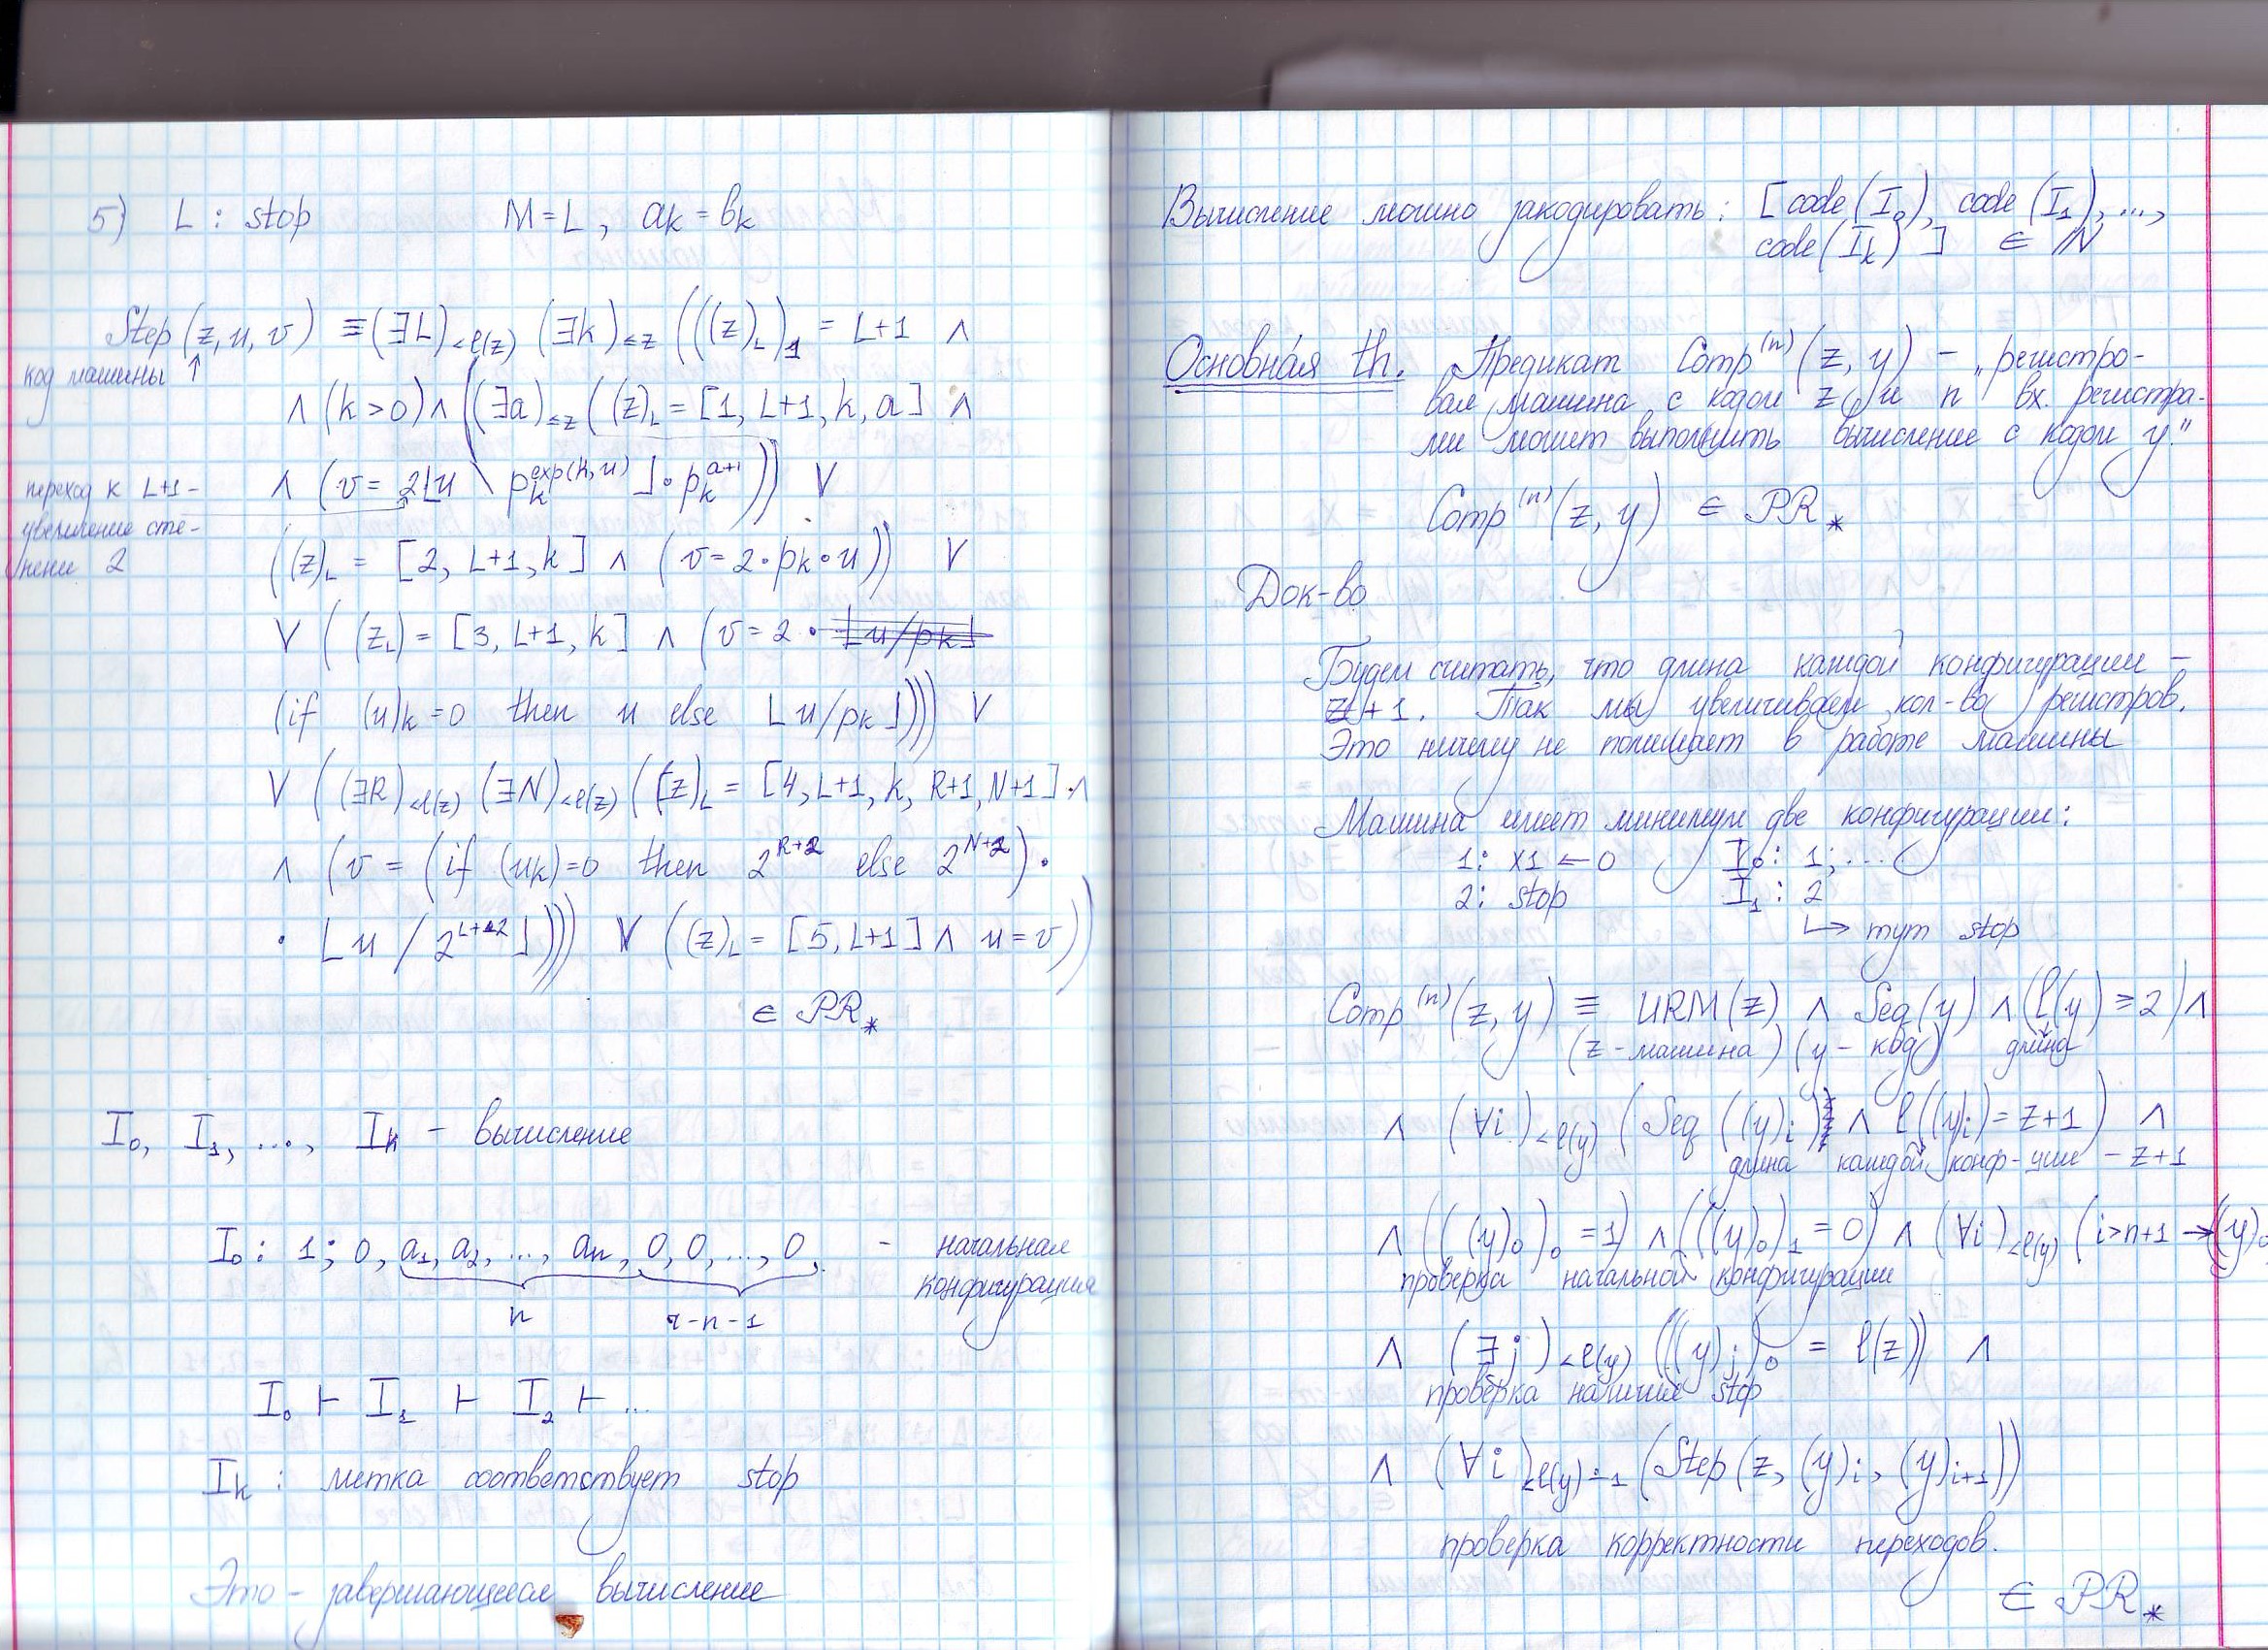 5) L : stop M = L , aₖ = bₖ
Step (z, u, v) ≡ (∃L)<ℓ(z) (∃k)≤z (((z)L)₁ = L+1 ∧
код машины ↑
∧ (k > 0) ∧ ((∃a)≤z ((z)L = [1, L+1, k, a] ∧
∧ (v = 2⌊u \ pₖ^exp(k,u) ⌋ · pₖ^a+1 )) ∨
переход к L+1 -
увеличение сте-
пени 2
((z)L = [2, L+1, k] ∧ (v = 2 · pₖ · u)) ∨
∨ ( (zL) = [3, L+1, k] ∧ (v = 2 ·
(if (u)k = 0 then u else ⌊u/pₖ⌋))) ∨
∨ ((∃R)<ℓ(z) (∃N)<ℓ(z) ((z)L = [4, L+1, k, R+1, N+1] ∧
∧ (v = (if (uk) = 0 then 2^R+2 else 2^N+2) ·
· ⌊u / 2^L+2⌋))) ∨ ((z)L = [5, L+1] ∧ u = v))
∈ PR*
I₀, I₁, ..., Iₖ – вычисление
I₀ : 1; 0, a₁, a₂, ..., aₙ, 0, 0, ..., 0, - начальная
конфигурация
n r-n-1
I₀ ⊢ I₁ ⊢ I₂ ⊢ ...
Iₖ : метка соответствует stop
Это - завершающееся вычисление
Вычисление можно закодировать: [code(I₀), code(I₁), ...,
code(Iₖ)] ∈ ℕ
Основная th. Предикат Comp⁽ⁿ⁾(z, y) – „регистро-
вая машина с кодом z и n вх. регистра-
ми может выполнить вычисление с кодом y."
Comp⁽ⁿ⁾(z, y) ∈ PR*
Док-во
Будем считать, что длина каждой конфигурации –
z+1. Так мы увеличиваем кол-во регистров.
Это ничему не помешает в работе машины
Машина имеет минимум две конфигурации:
1: x1 ← 0 I₀ : 1; ...
2: stop I₁ : 2
↳ тут stop
Comp⁽ⁿ⁾(z, y) ≡ URM(z) ∧ Seq(y) ∧ (ℓ(y) ≥ 2) ∧
(z - машина) (y - код) длина
∧ (∀i)<ℓ(y) (Seq((y)i) ∧ ℓ((y)i) = z+1) ∧
длина каждой конф-ции – z+1
∧ (((y)₀)₀ = 1) ∧ (((y)₀)₁ = 0) ∧ (∀i)<ℓ(y) (i > n+1 → (y)₀
проверка начальной конфигурации
∧ (∃j)<ℓ(y) (((y)j)₀ = ℓ(z)) ∧
проверка наличия stop
∧ (∀i)<ℓ(y)∸1 (Step(z, (y)i, (y)i+1))
проверка корректности переходов.
∈ PR*